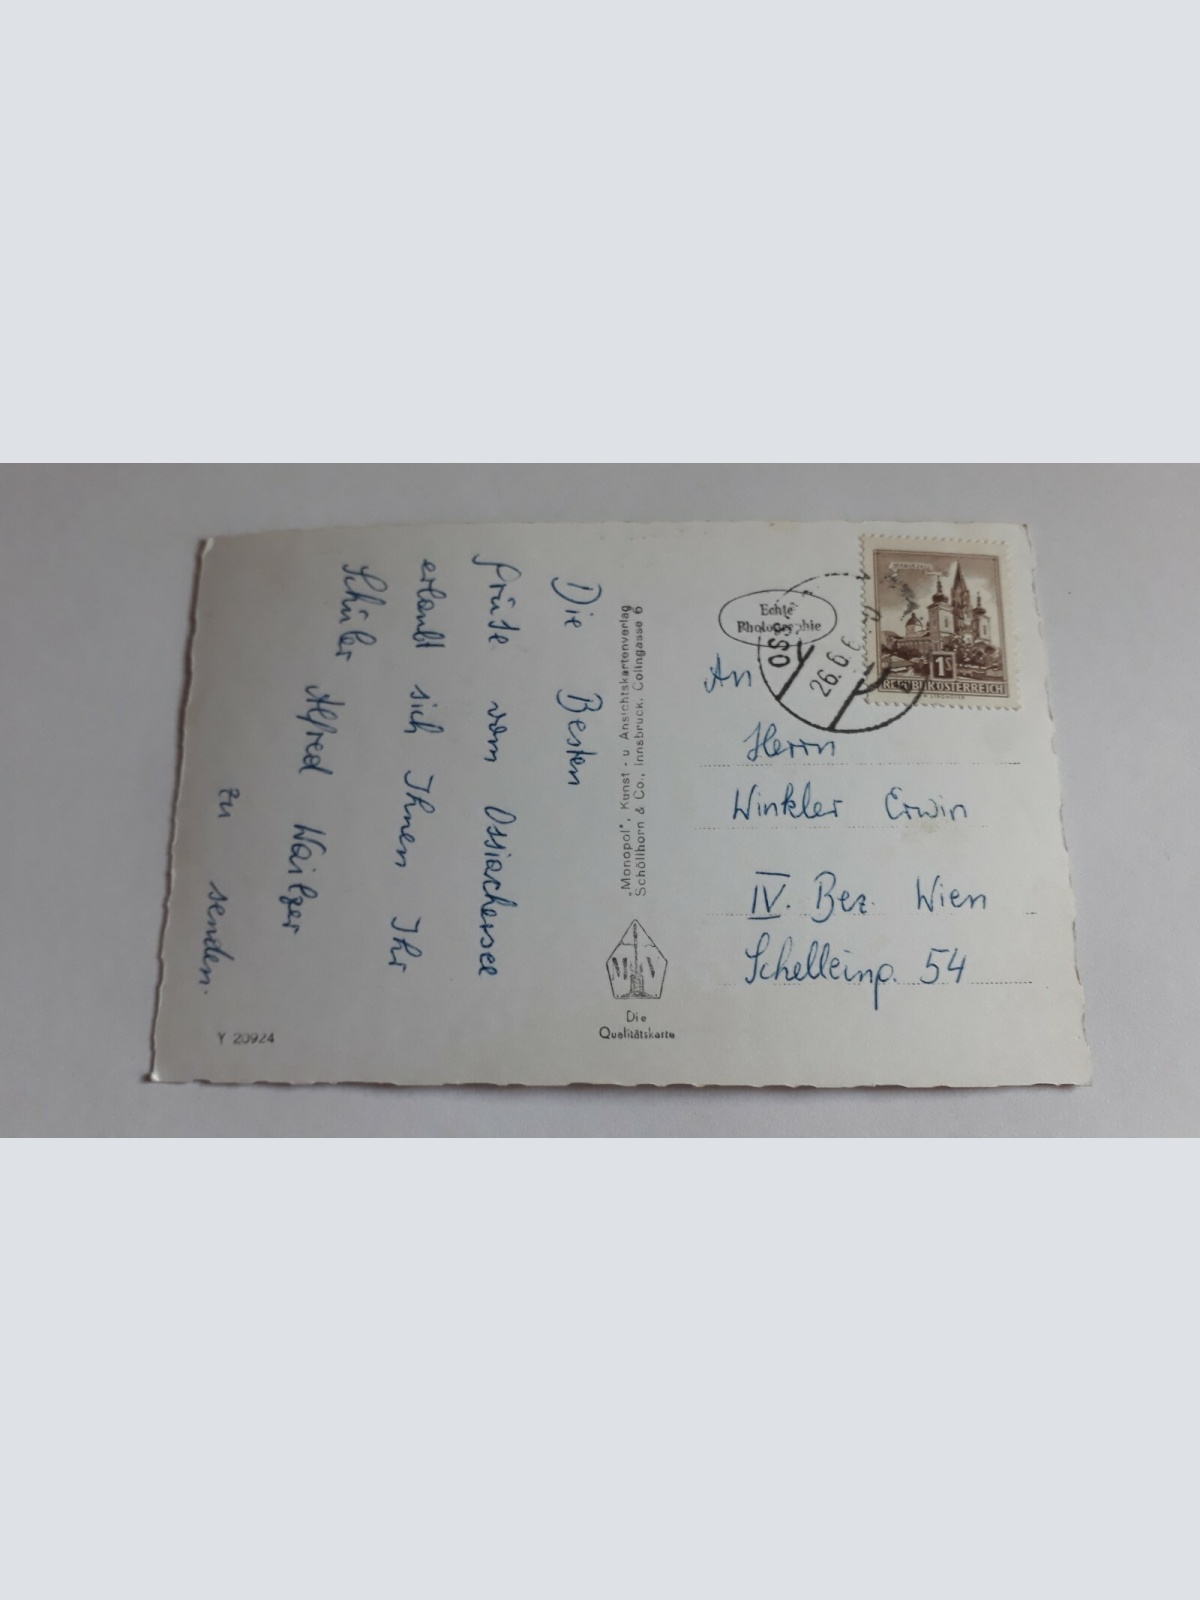 Die Besten
Grüße vom Ossiachersee
erlaubt sich Ihnen Ihr
Schüler Alfred
zu senden.
Y 20924
"Monopol", Kunst- u Ansichtskartenverlag
Schöllhorn & Co., Innsbruck, Colingasse 6
Die
Qualitätskarte
Echte
Photographie
26.6.6
1S
REPUBLIK ÖSTERREICH
An
Herrn
Winkler Erwin
IV. Bez. Wien
Schelleing. 54